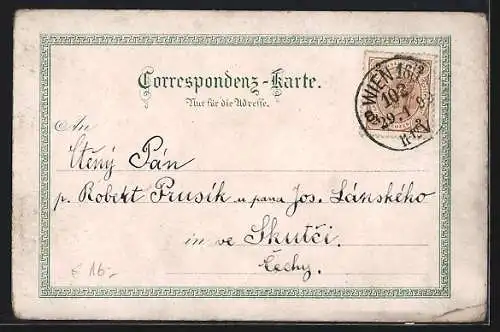 Correspondenz-Karte.
Nur für die Adresse.
WIEN
An
Ctěný Pán
p. Robert Prusík u pana Jos. Lánského
in ve Skutči.
Čechy.
€ 16.-